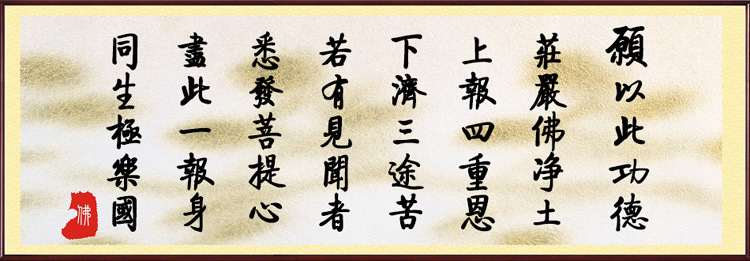 願以此功德
莊嚴佛净土
上報四重恩
下濟三途苦
若有見聞者
悉發菩提心
盡此一報身
同生極樂國
佛